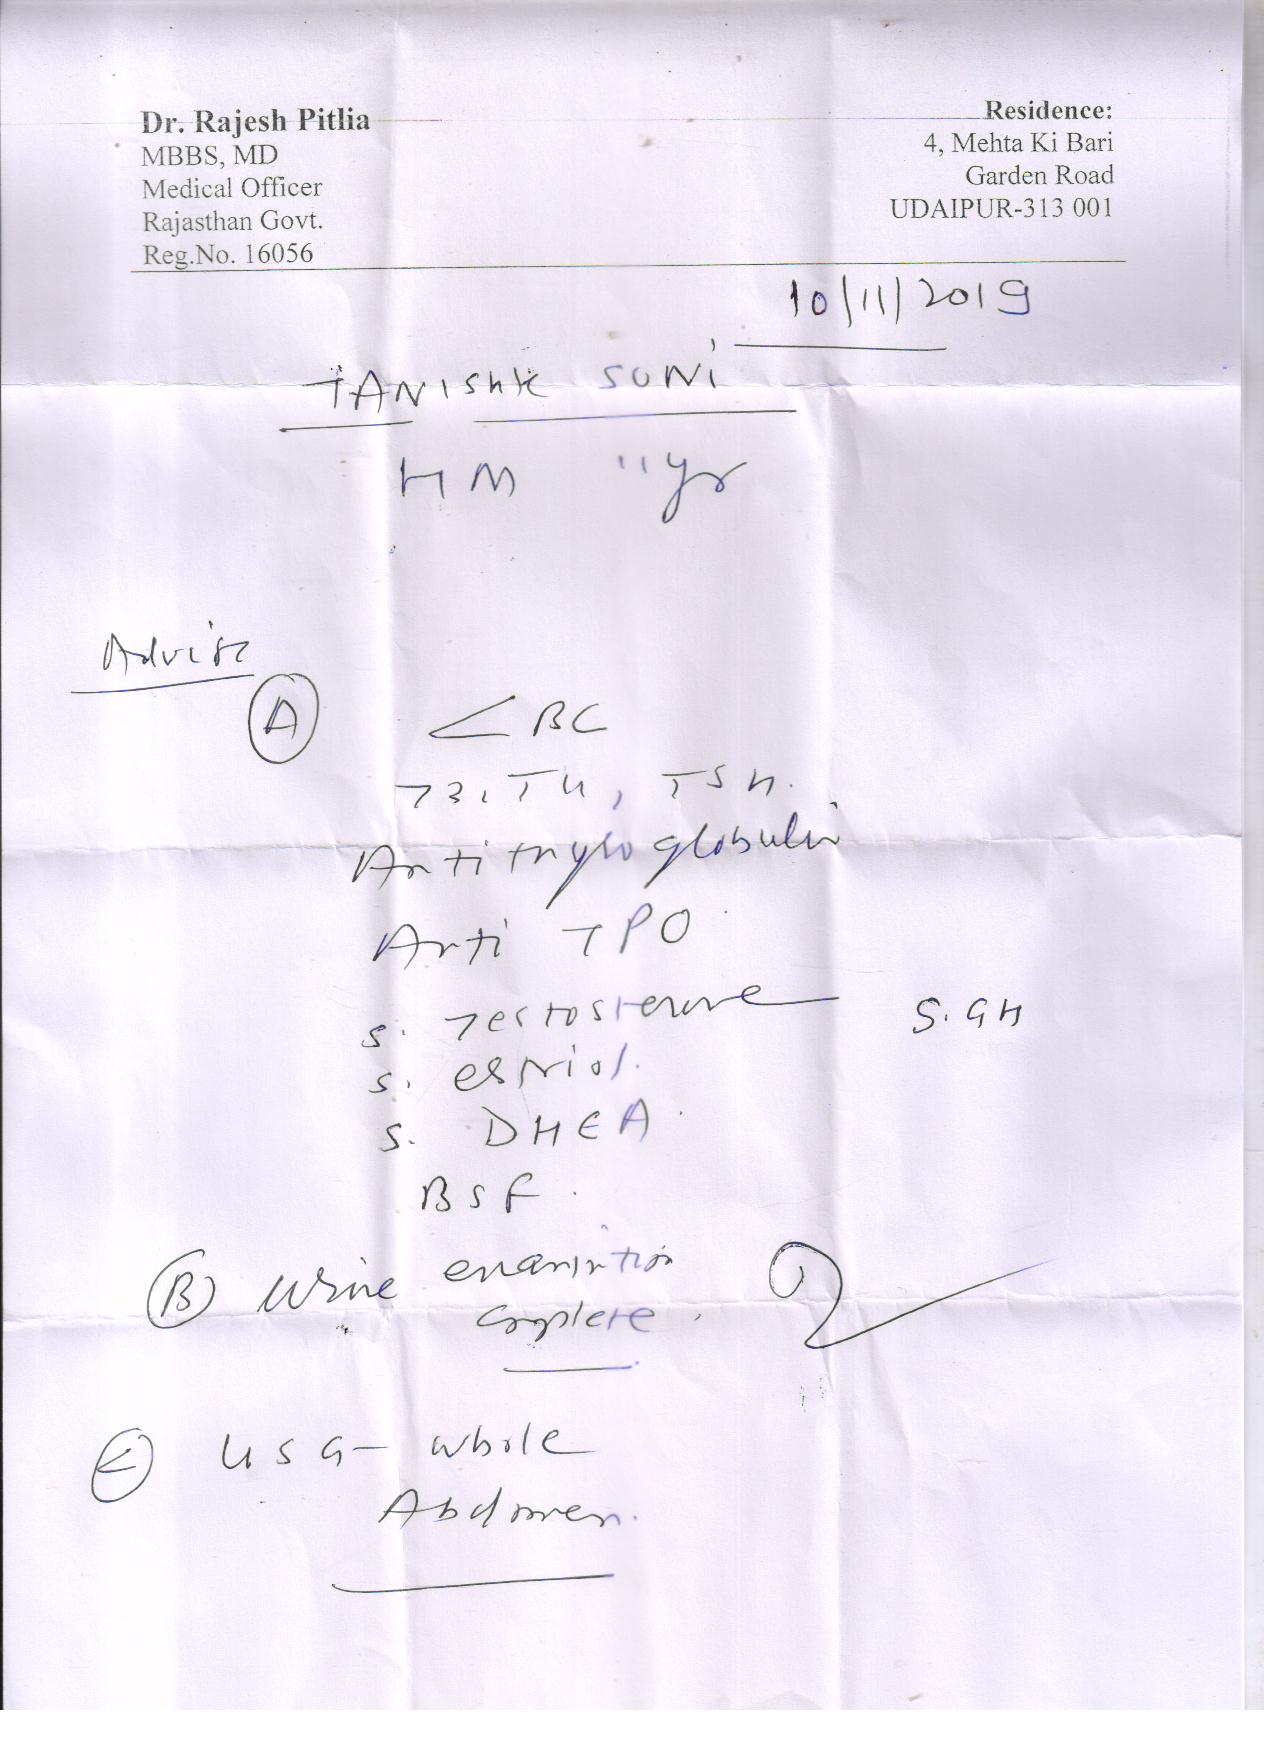 Dr. Rajesh Pitlia
MBBS, MD
Medical Officer
Rajasthan Govt.
Reg.No. 16056
Residence:
4, Mehta Ki Bari
Garden Road
UDAIPUR-313 001
10/11/2019
TANISHK SONI
HM 11yr
Advise
A CBC
T3, T4, TSH.
Antithyroglobulin
Anti TPO
S. Testosterone
S. GH
S. estriol.
S. DHEA
BSF
B Urine examination
complete
C USG - Whole
Abdomen.